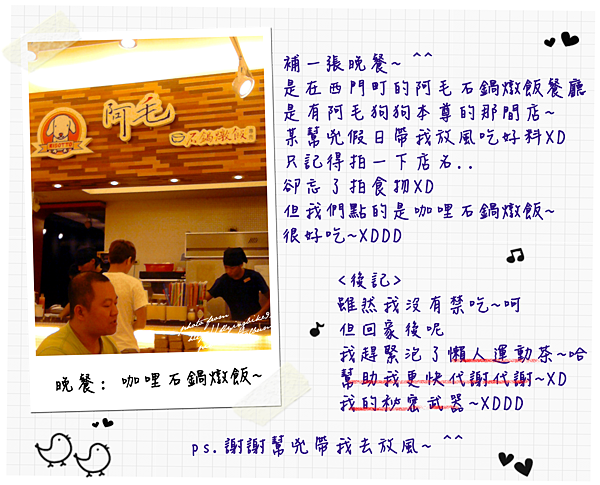 阿毛
石鍋燉飯
RISOTTO
photo from
晚餐: 咖哩石鍋燉飯~
補一張晚餐~ ^^
是在西門町的阿毛石鍋燉飯餐廳
是有阿毛狗狗本尊的那間店~
某幫兇假日帶我放風吃好料XD
只記得拍一下店名..
卻忘了拍食物XD
但我們點的是咖哩石鍋燉飯~
很好吃~XDDD
<後記>
雖然我沒有禁吃~呵
但回家後呢
我趕緊泡了懶人運動茶~哈
幫助我更快代謝代謝~XD
我的祕密武器~XDDD
ps.謝謝幫兇帶我去放風~ ^^